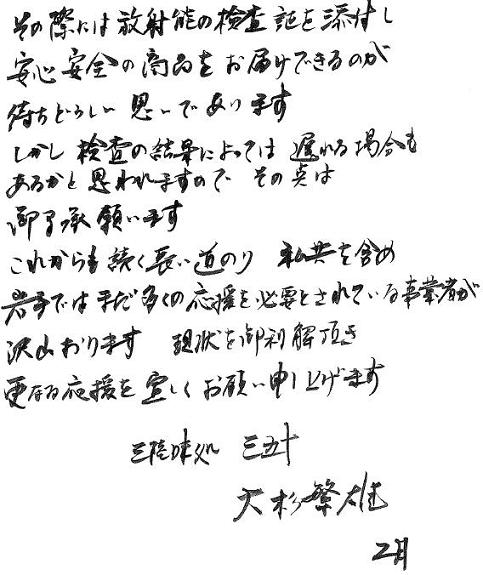 その際には放射能の検査証を添付し
安心安全の商品をお届けできるのが
待ちどうしい思いであります
しかし検査の結果によっては遅れる場合も
あるかと思われますので その点は
御了承願います
これからも続く長い道のり 私共を含め
岩手ではまだ多くの応援を必要とされている事業者が
沢山おります 現状を御利解頂き
更なる応援を宜しくお願い申し上げます
三陸味処 三五十
大杉繁雄
2月